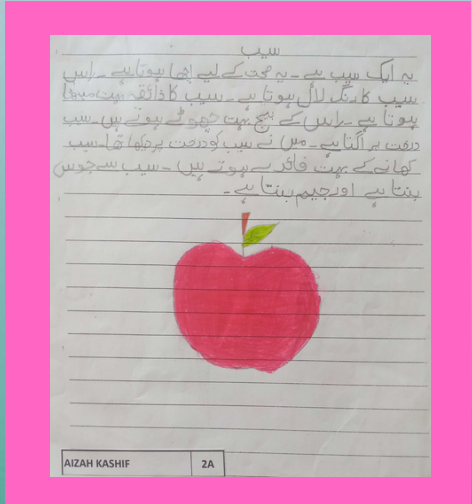 سیب
یہ ایک سیب ہے۔ یہ صحت کے لیے اچھا ہوتا ہے۔ اس
سیب کا رنگ لال ہوتا ہے۔ سیب کا ذائقہ بہت میٹھا
ہوتا ہے۔ اس کے بیج بہت چھوٹے ہوتے ہیں۔ سیب
درخت پر اگتا ہے۔ میں نے سیب کو درخت پر دیکھا تھا۔ سیب
کھانے کے بہت فائدے ہوتے ہیں۔ سیب سے جوس
بنتا ہے اور جیم بنتا ہے۔
AIZAH KASHIF 2A